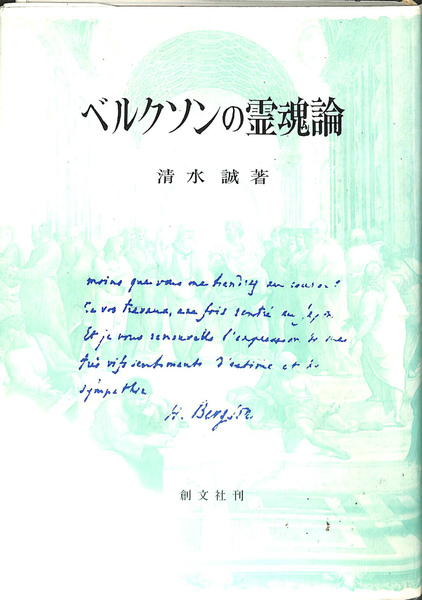 ベルクソンの霊魂論
清水 誠 著
moins que vous me tiendrez au courant
de vos travaux, une fois rentré au Japon.
Et je vous renouvelle l'expression de mes
très vifs sentiments d'estime et de
sympathie
H. Bergson
創文社刊